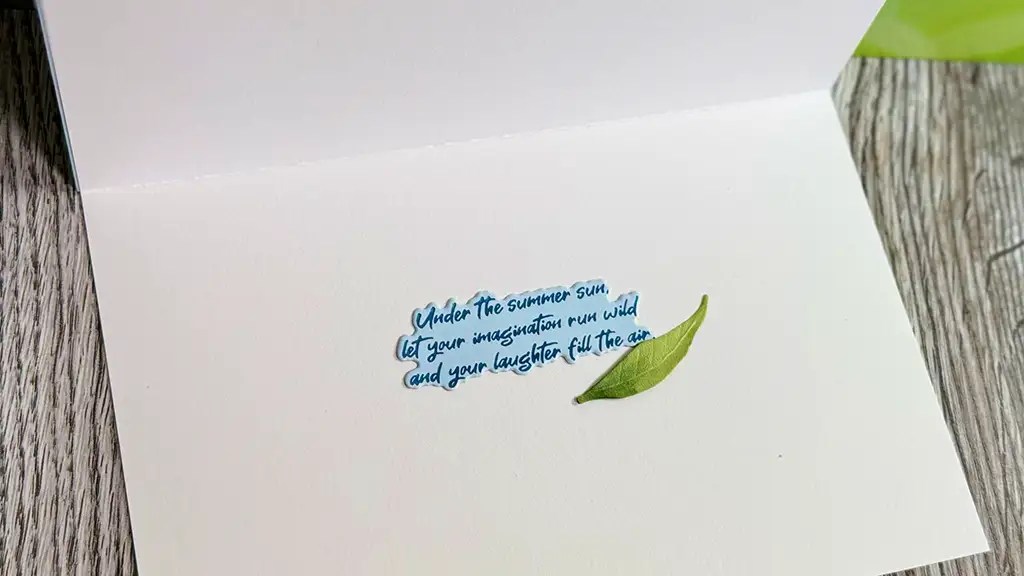 Under the summer sun,
let your imagination run wild
and your laughter fill the air